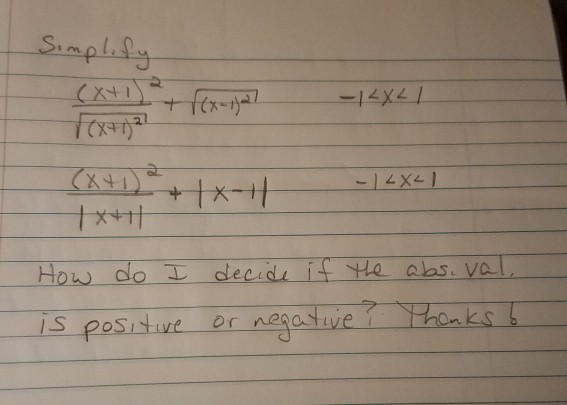 Simplify
(x+1)² / √(x+1)² + √(x-1)² -1<x<1
(x+1)² / |x+1| + |x-1| -1<x<1
How do I decide if the abs. val.
is positive or negative? Thanks